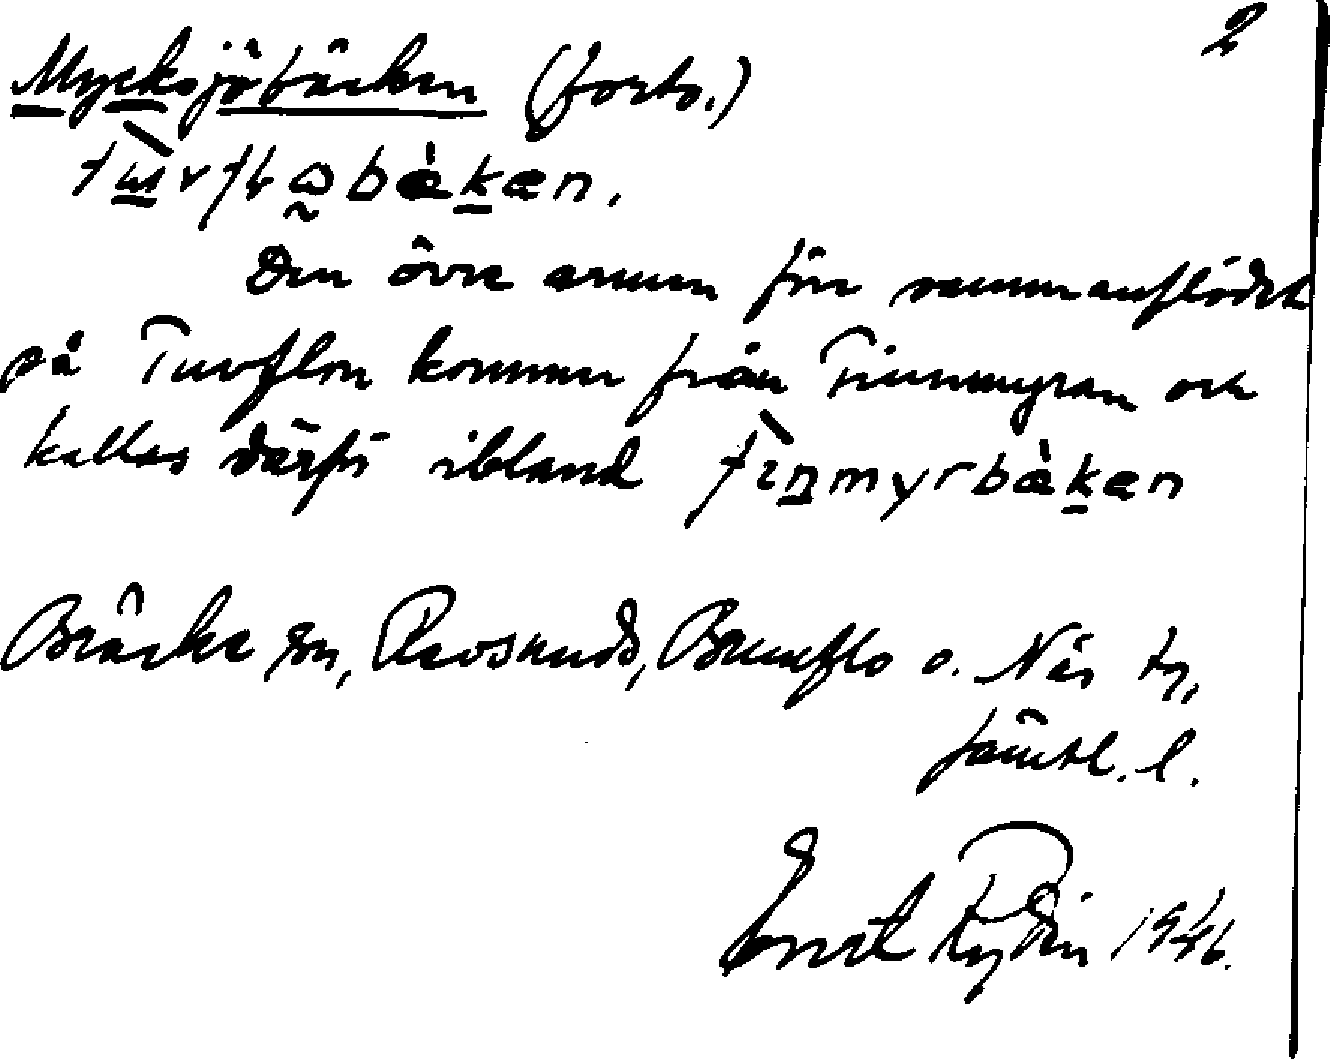 2
Mycksjöbäcken (forts.)
bækæn.
Den övre armen för sammanflödet
på Tuvflon kommer från Finnmyran och
kallas därför ibland fìnmyrbækæn
Bräcke sn, Revsunds, Brunflo o. Näs tg,
Jämtl. l.
Ernst Rydin 1946.